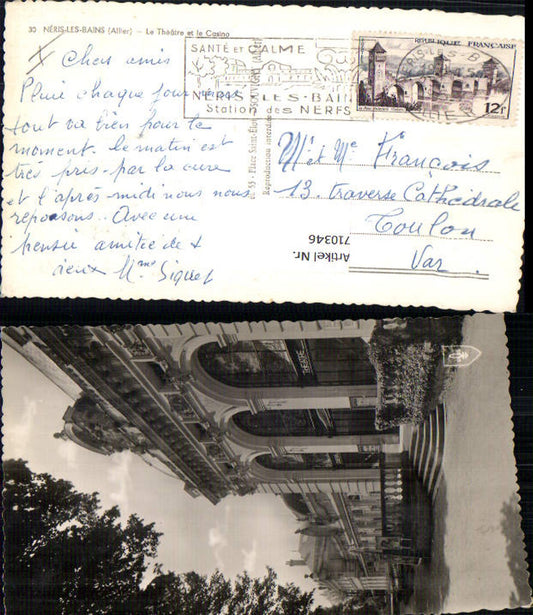 30 NÉRIS-LES-BAINS (Allier) - Le Théâtre et le Casino
SANTÉ et CALME
NÉRIS-LES-BAINS
Station des NERFS
RÉPUBLIQUE FRANÇAISE
12F
Chers amis
Pluie chaque jour
tout va bien pour le
moment. le matin est
très pris par la cure
et l'après midi nous nous
reposons. Avec une
pensée amitée de
vieux Mme Siguet
Reproduction interdite
M. et Me François
13. traverse Cathédrale
Toulon
Var.
Artikel Nr.
710346